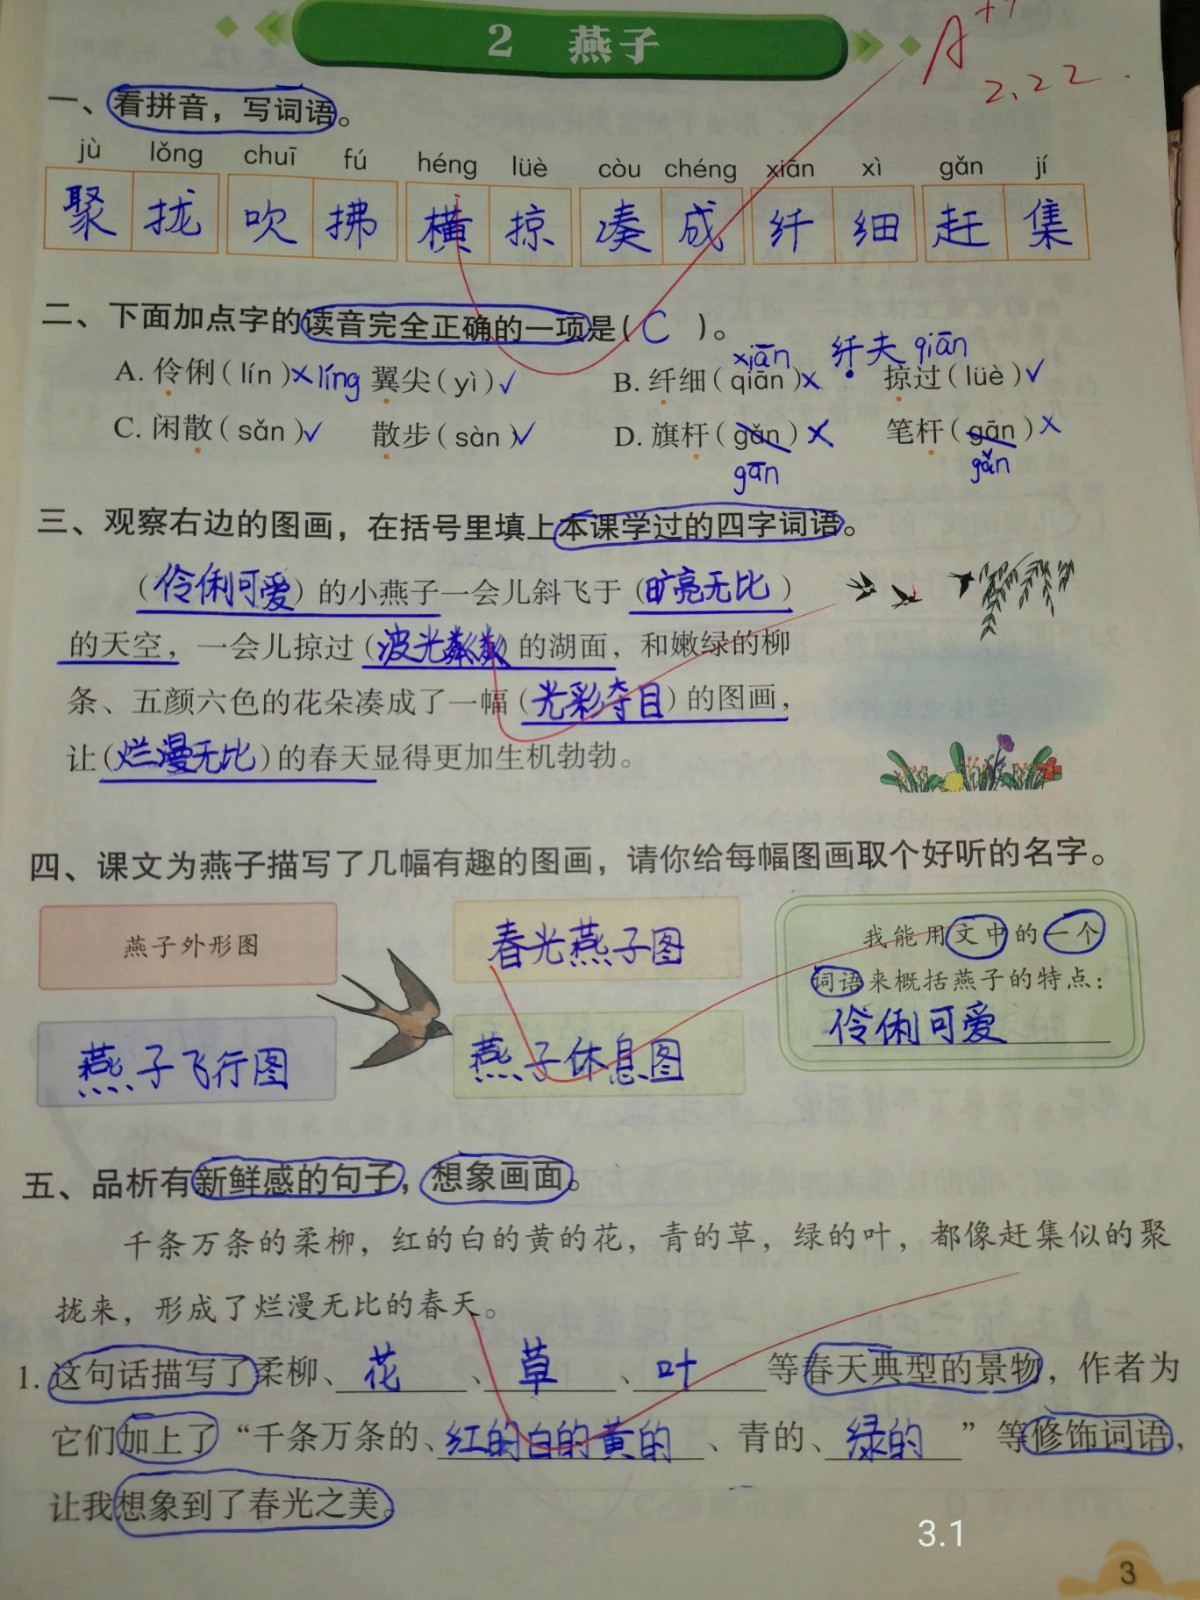 2 燕子
A++
2.22.
一、看拼音，写词语。
jù lǒng chuī fú héng lüè còu chéng xiān xì gǎn jí
聚拢 吹拂 横掠 凑成 纤细 赶集
二、下面加点字的读音完全正确的一项是( C )。
xiān 纤夫 qiān
A. 伶俐(lín)×líng 翼尖(yì)√ B. 纤细(qiān)× 掠过(lüè)√
C. 闲散(sǎn)√ 散步(sàn)√ D. 旗杆(gǎn)× 笔杆(gān)×
gān gǎn
三、观察右边的图画，在括号里填上本课学过的四字词语。
(伶俐可爱)的小燕子一会儿斜飞于(旷亮无比)
的天空，一会儿掠过(波光粼粼)的湖面，和嫩绿的柳
条、五颜六色的花朵凑成了一幅(光彩夺目)的图画，
让(烂漫无比)的春天显得更加生机勃勃。
四、课文为燕子描写了几幅有趣的图画，请你给每幅图画取个好听的名字。
燕子外形图 春光燕子图 我能用文中的一个
词语来概括燕子的特点：
燕子飞行图 燕子休息图 伶俐可爱
五、品析有新鲜感的句子，想象画面。
千条万条的柔柳，红的白的黄的花，青的草，绿的叶，都像赶集似的聚
拢来，形成了烂漫无比的春天。
1. 这句话描写了柔柳、花、草、叶等春天典型的景物，作者为
它们加上了“千条万条的、红的白的黄的、青的、绿的”等修饰词语，
让我想象到了春光之美。
3.1
3